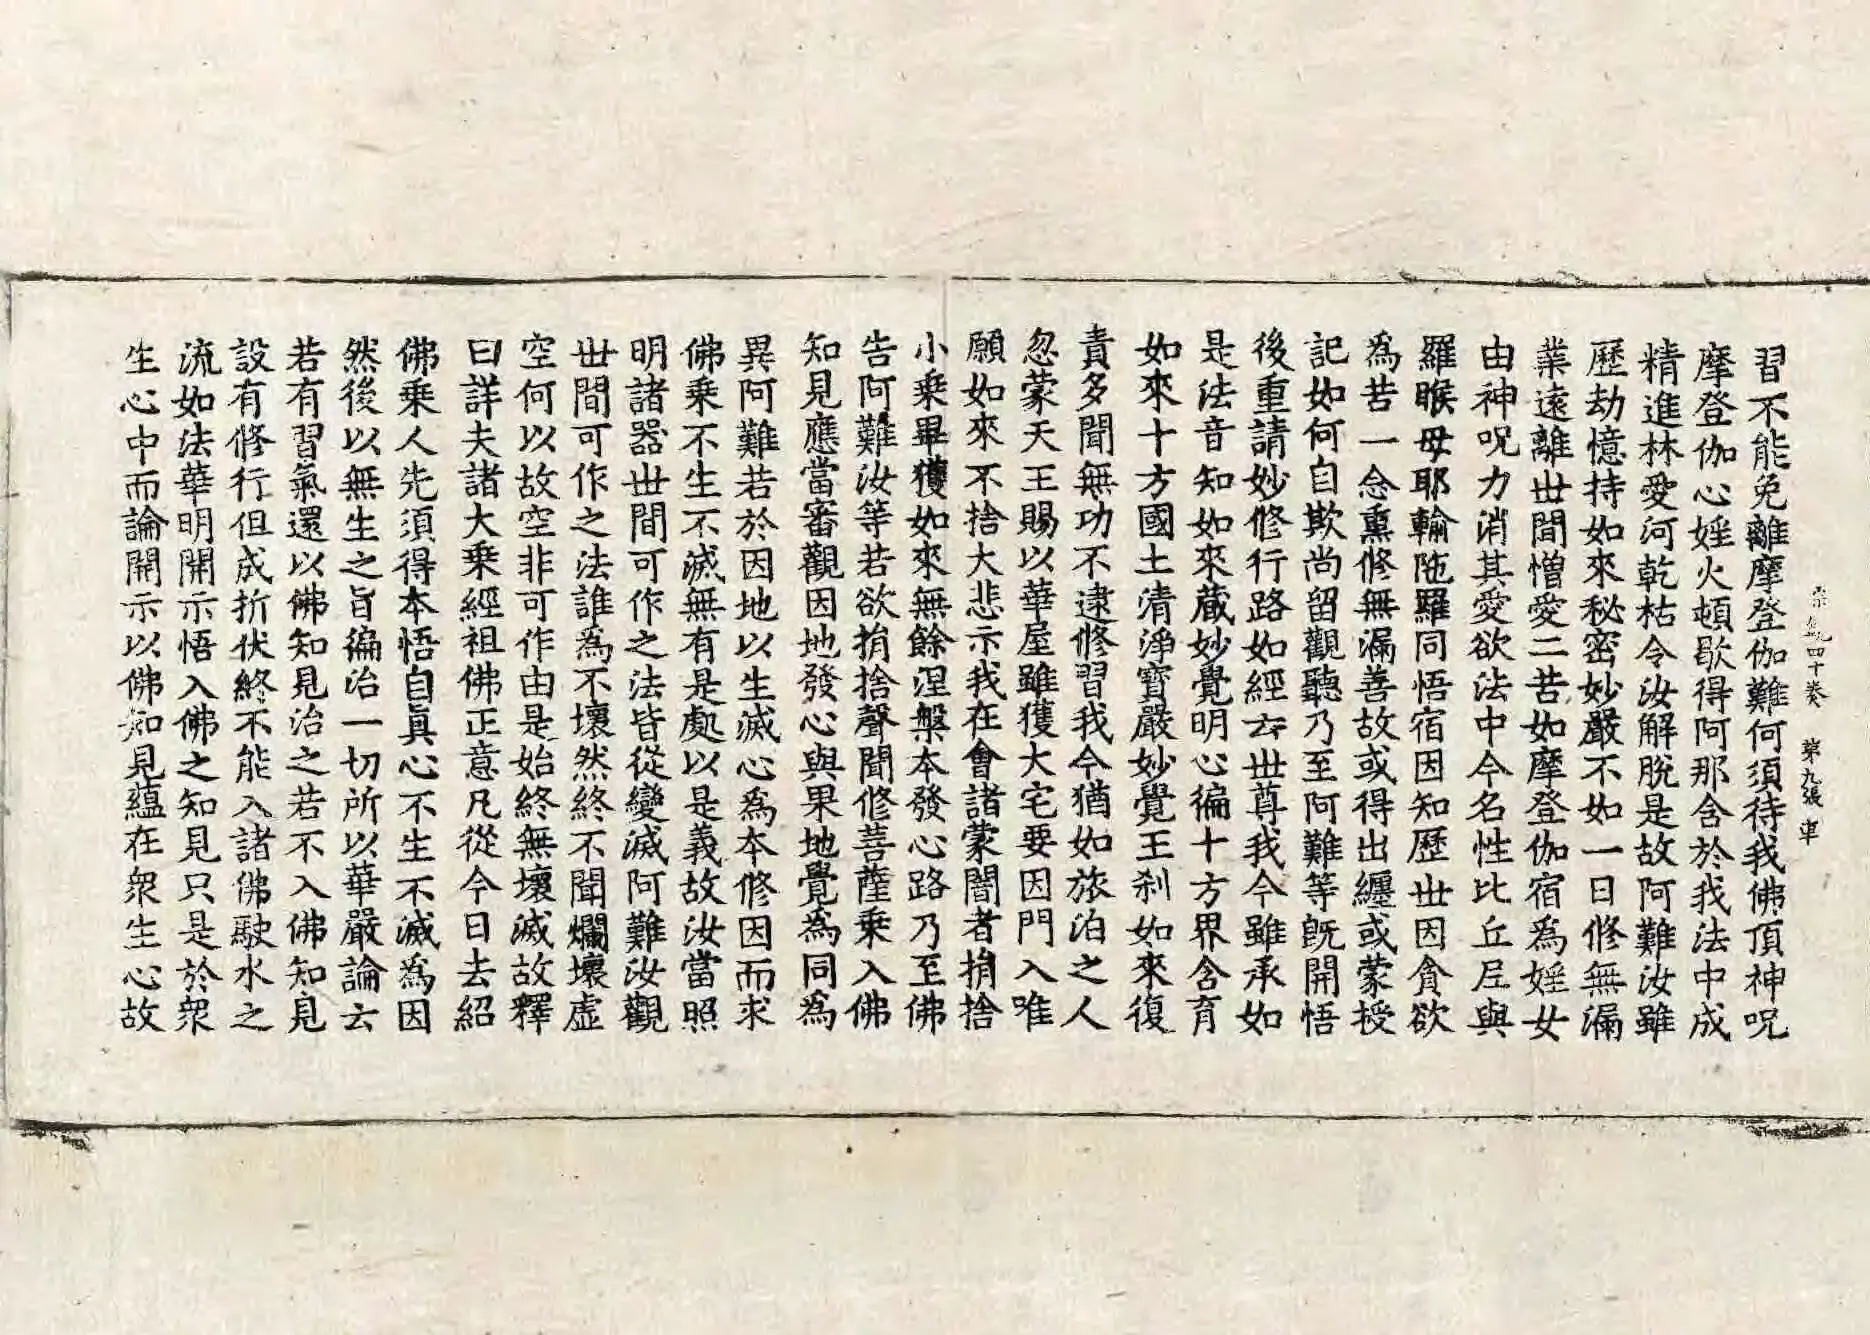 宗鏡四十卷 第九張 車
習不能免離摩登伽難何須待我佛頂神呪
摩登伽心婬火頓歇得阿那含於我法中成
精進林愛河乾枯令汝解脫是故阿難汝雖
歷劫憶持如來秘密妙嚴不如一日修無漏
業遠離世間憎愛二苦如摩登伽宿為婬女
由神呪力消其愛欲法中今名性比丘尼與
羅睺母耶輸陁羅同悟宿因知歷世因貪欲
為苦一念熏修無漏善故或得出纏或蒙授
記如何自欺尚留觀聽乃至阿難等旣開悟
後重請妙修行路如經云世尊我今雖承如
是法音知如來藏妙覺明心徧十方界含育
如來十方國土清淨寶嚴妙覺王刹如來復
責多聞無功不逮修習我今猶如旅泊之人
忽蒙天王賜以華屋雖獲大宅要因門入唯
願如來不捨大悲示我在會諸蒙闇者捐捨
小乗畢獲如來無餘涅槃本發心路乃至佛
告阿難汝等若欲捐捨聲聞修菩薩乗入佛
知見應當審觀因地發心與果地覺為同為
異阿難若於因地以生滅心為本修因而求
佛乗不生不滅無有是處以是義故汝當照
明諸器世間可作之法皆從變滅阿難汝觀
世間可作之法誰為不壞然終不聞爛壞虛
空何以故空非可作由是始終無壞滅故釋
曰詳夫諸大乗經祖佛正意凡從今日去紹
佛乗人先須得本悟自眞心不生不滅為因
然後以無生之旨徧治一切所以華嚴論云
若有習氣還以佛知見治之若不入佛知見
設有修行但成折伏終不能入諸佛駛水之
流如法華明開示悟入佛之知見只是於衆
生心中而論開示以佛知見蘊在衆生心故